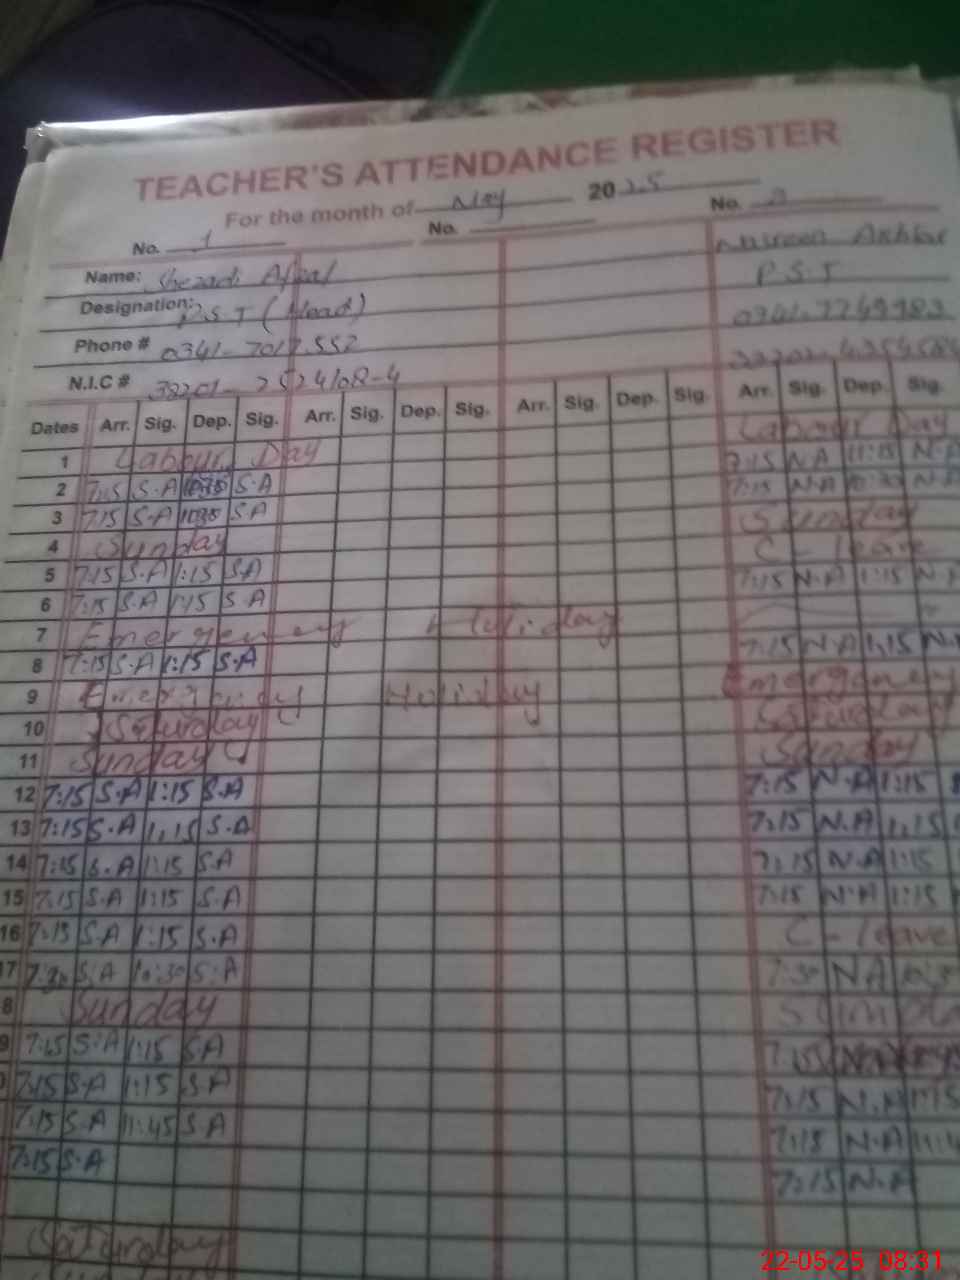 TEACHER'S ATTENDANCE REGISTER
For the month of May 2025
No. 1 No. No. 2
Name: Shezadi Afzal Nureen Akhtar
Designation: P.S.T (Head) P.S.T
Phone # 0341-7017552 0341-7749983
N.I.C #
Dates Arr. Sig. Dep. Sig. Arr. Sig. Dep. Sig. Arr. Sig. Dep. Sig. Arr. Sig. Dep. Sig.
1 Labour Day Labour Day
2 7:15 S.A S.A 7:15 N.A 11:15 N.A
3 7:15 S.A 1030 S.A 7:15 N.A N.A
4 Sunday Sunday
5 7:15 S.A 1:15 S.A C-leave
6 7:15 S.A 1:15 S.A 7:15 N.A 1:15 N.A
7 Emergency Holiday
8 7:15 S.A 1:15 S.A 7:15 N.A 1,15 N.
9 Emergency Holiday Emergency
10 Saturday Saturday
11 Sunday Sunday
12 7:15 S.A 1:15 S.A 7:15 N.A 1:15
13 7:15 S.A 1,15 S.A 7:15 N.A 1,15
14 7:15 S.A 1:15 S.A 7:15 N.A 1:15
15 7:15 S.A 1:15 S.A 7:15 N.A 1:15
16 7:15 S.A 1:15 S.A C-leave
17 7:30 S.A 10:30 S.A 7:30 N.A 10:3
8 Sunday
9 7:15 S.A 1:15 S.A 7:15
7:15 S.A 1:15 S.A 7:15 N.A 1:15
7:15 S.A 11:45 S.A 7:15 N.A 11:4
7:15 S.A 7:15 N.A
Saturday
22-05-25 08:31